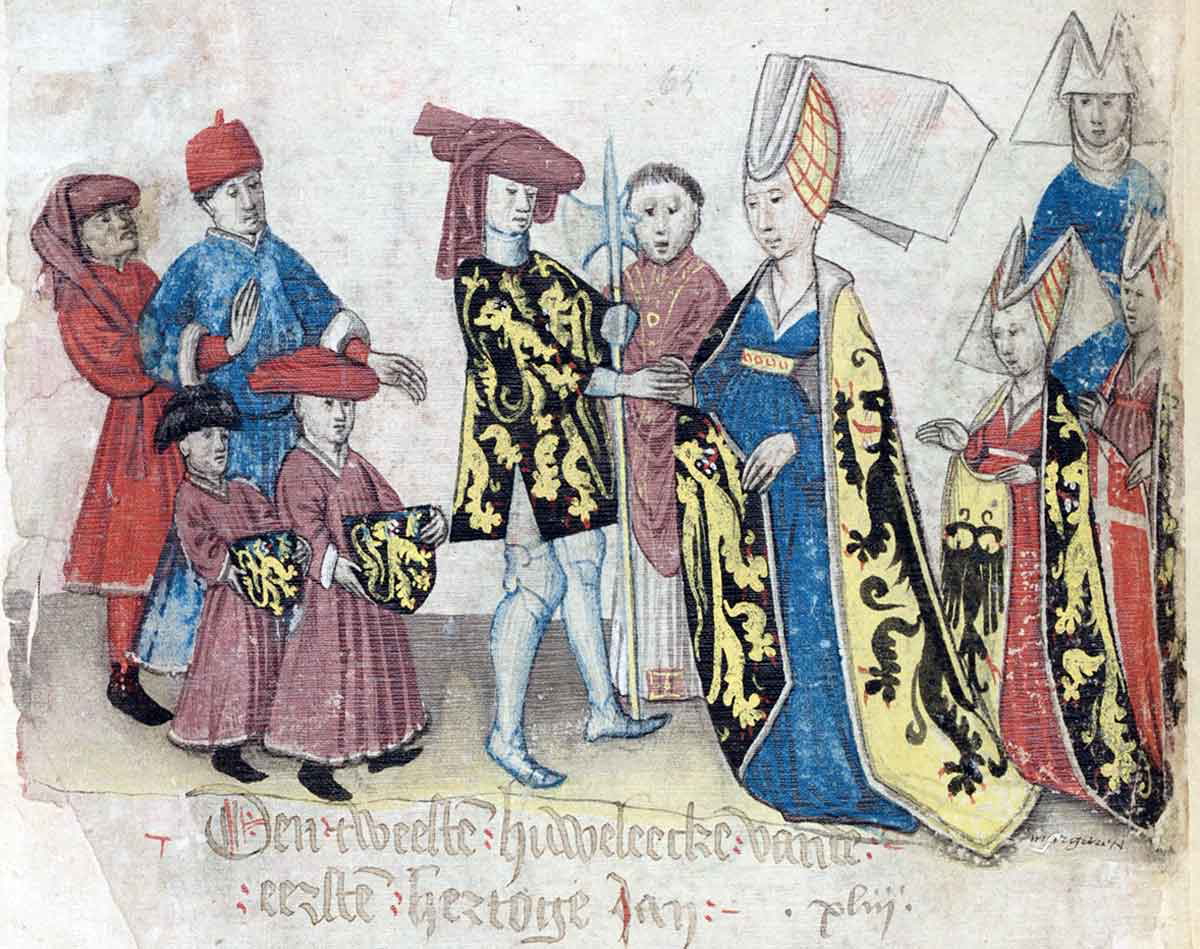 65
Den tweeste huweleecke vante
eerste hertoge Jan xliij